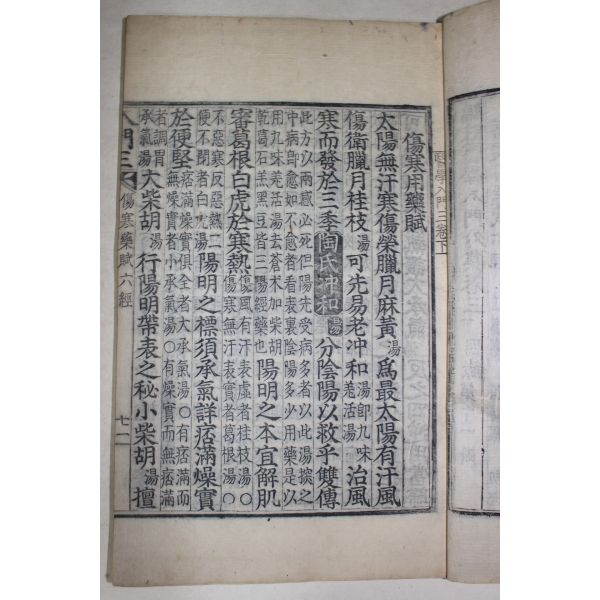 醫學入門三卷下
傷寒用藥賦
太陽無汗寒傷榮臘月麻黃湯爲最太陽有汗風
傷衛臘月桂枝湯可先易老冲和湯即九味羌活湯治風
寒而發於三季陶氏冲和湯分陰陽以救乎雙傳
此方以兩感必死但陽先受病多者以此湯探之
中病即愈如不愈者看表裏陰陽多少用藥是以
用九味羌活湯去蒼木加柴胡
乾葛石羔黑豆皆三陽經藥也陽明之本宜解肌
審葛根白虎於寒熱傷風有汗表虛者桂枝湯○傷寒無汗表實者葛根湯○
不惡寒反惡熱二便不閉者白虎湯陽明之標須承氣詳痞滿燥實
於便堅痞滿燥實俱全者大承氣湯○有痞滿而無燥實者小承氣湯○有燥實而無痞滿
者調胃承氣湯大柴胡湯行陽明帶表之秘小柴胡湯擅
入門三
傷寒藥賦六經
七一